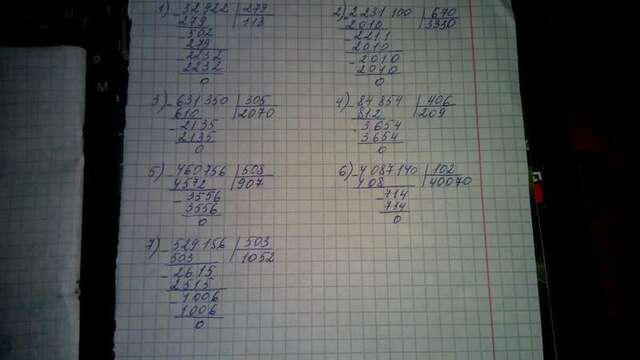 1) - 32922 | 279
279 | 118
- 502
279
- 2232
2232
0
2) - 2231100 | 670
2010 | 3330
- 2211
2010
- 2010
2010
0
3) - 631350 | 305
610 | 2070
- 2135
2135
0
4) - 84854 | 406
812 | 209
- 3654
3654
0
5) - 460756 | 508
4572 | 907
- 3556
3556
0
6) - 4087140 | 102
408 | 40070
- 714
714
0
7) - 529156 | 503
503 | 1052
- 2615
2515
- 1006
1006
0